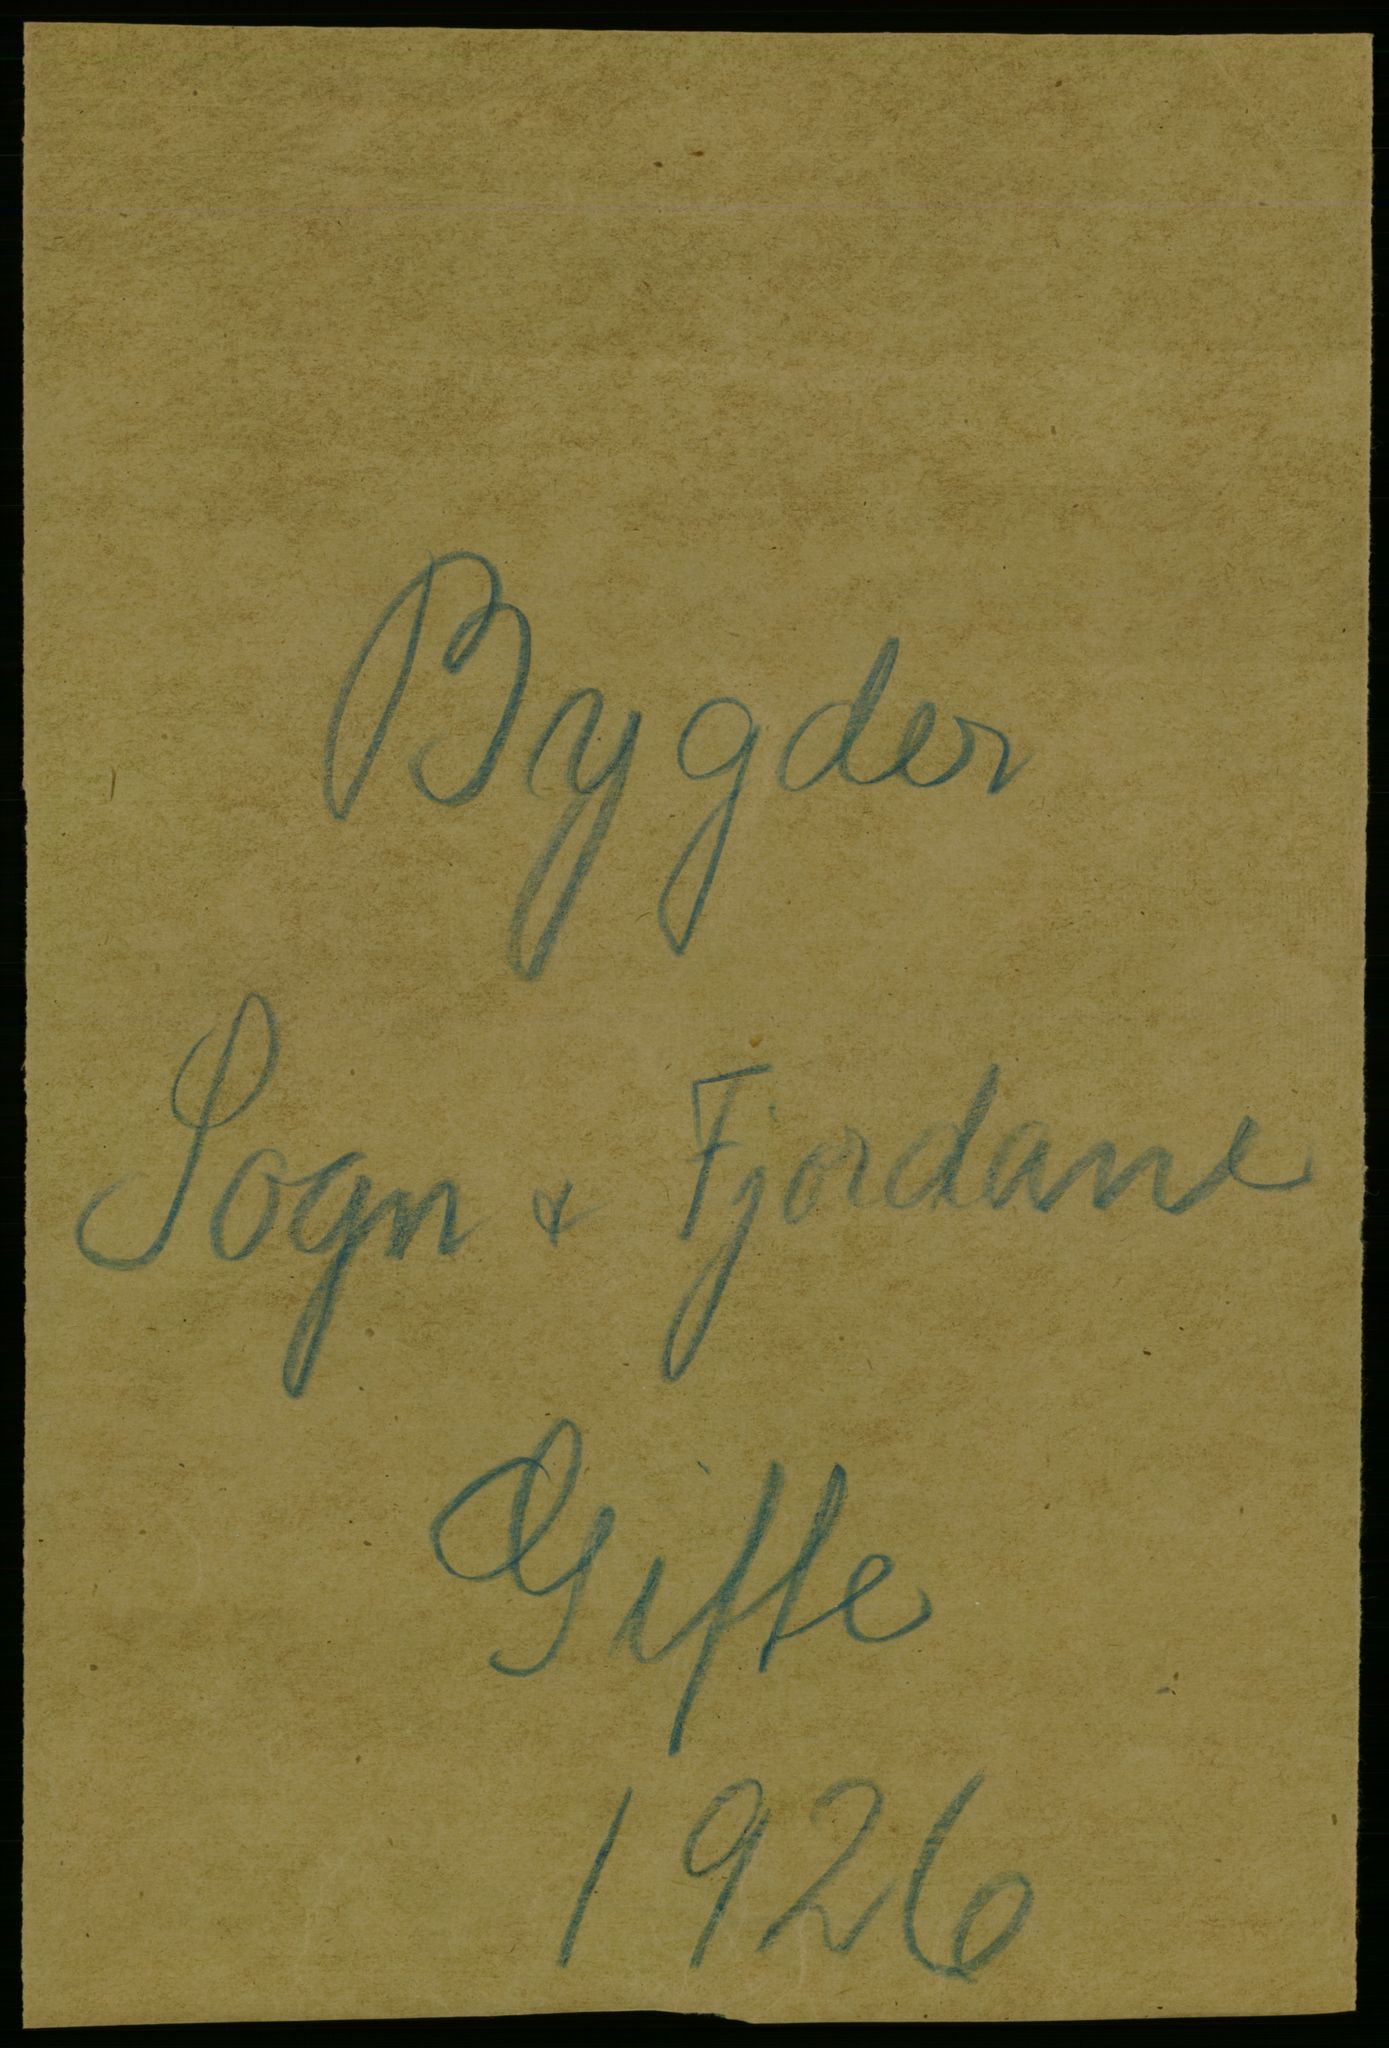 Bygder
Sogn & Fjordane
Gifte
1926